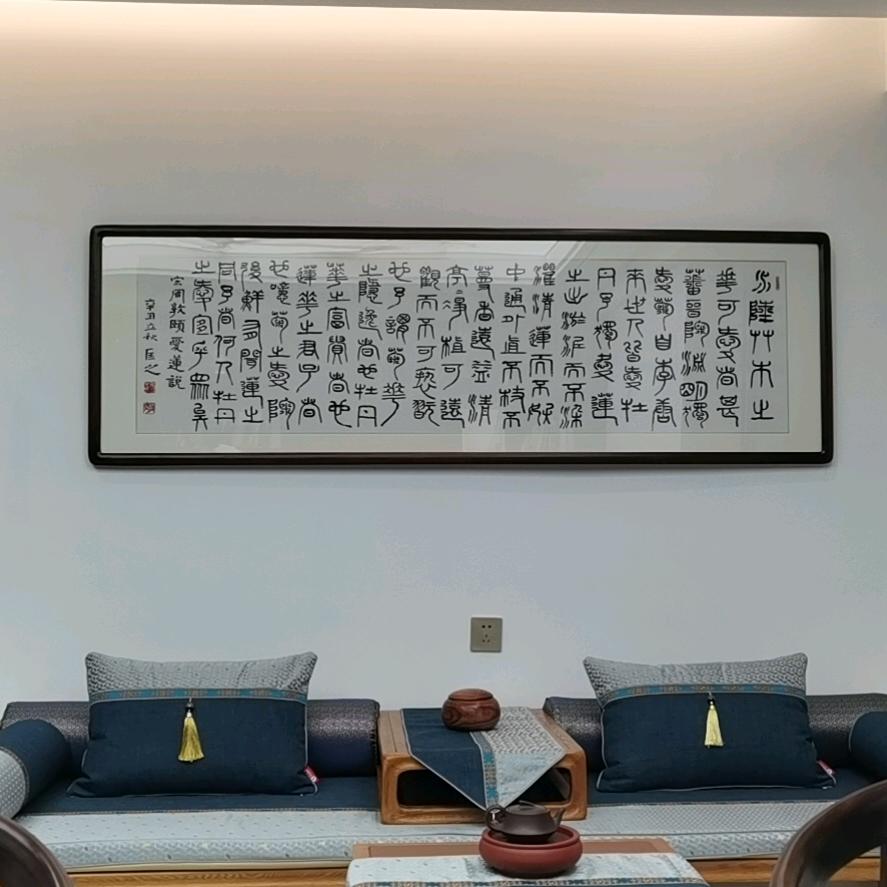 水陸艸木之
華可愛者甚
蕃晉陶淵明獨
愛菊自李唐
來世人皆愛牡
丹予獨愛蓮
之出淤泥而不染
濯清漣而不妖
中通外直不枝不
蔓香遠益清
亭亭淨植可遠
觀而不可褻翫
也予謂菊華
之隱逸者也牡丹
華之富貴者也
蓮華之君子者
也噫菊之愛陶
後鮮有聞蓮之
同予者何人牡丹
之愛宜乎眾矣
宋周敦頤愛蓮說
辛丑立秋匡之